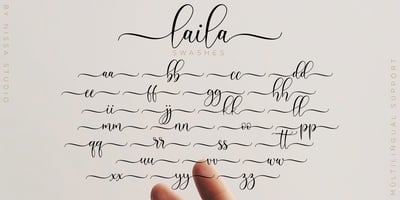 laila
SWASHES
aa bb cc dd
ee ff gg hh
ii jj kk ll
mm nn oo pp
qq rr ss tt
uu vv ww
xx yy zz
BY NISSA STUDIO
MULTILINGUAL SUPPORT